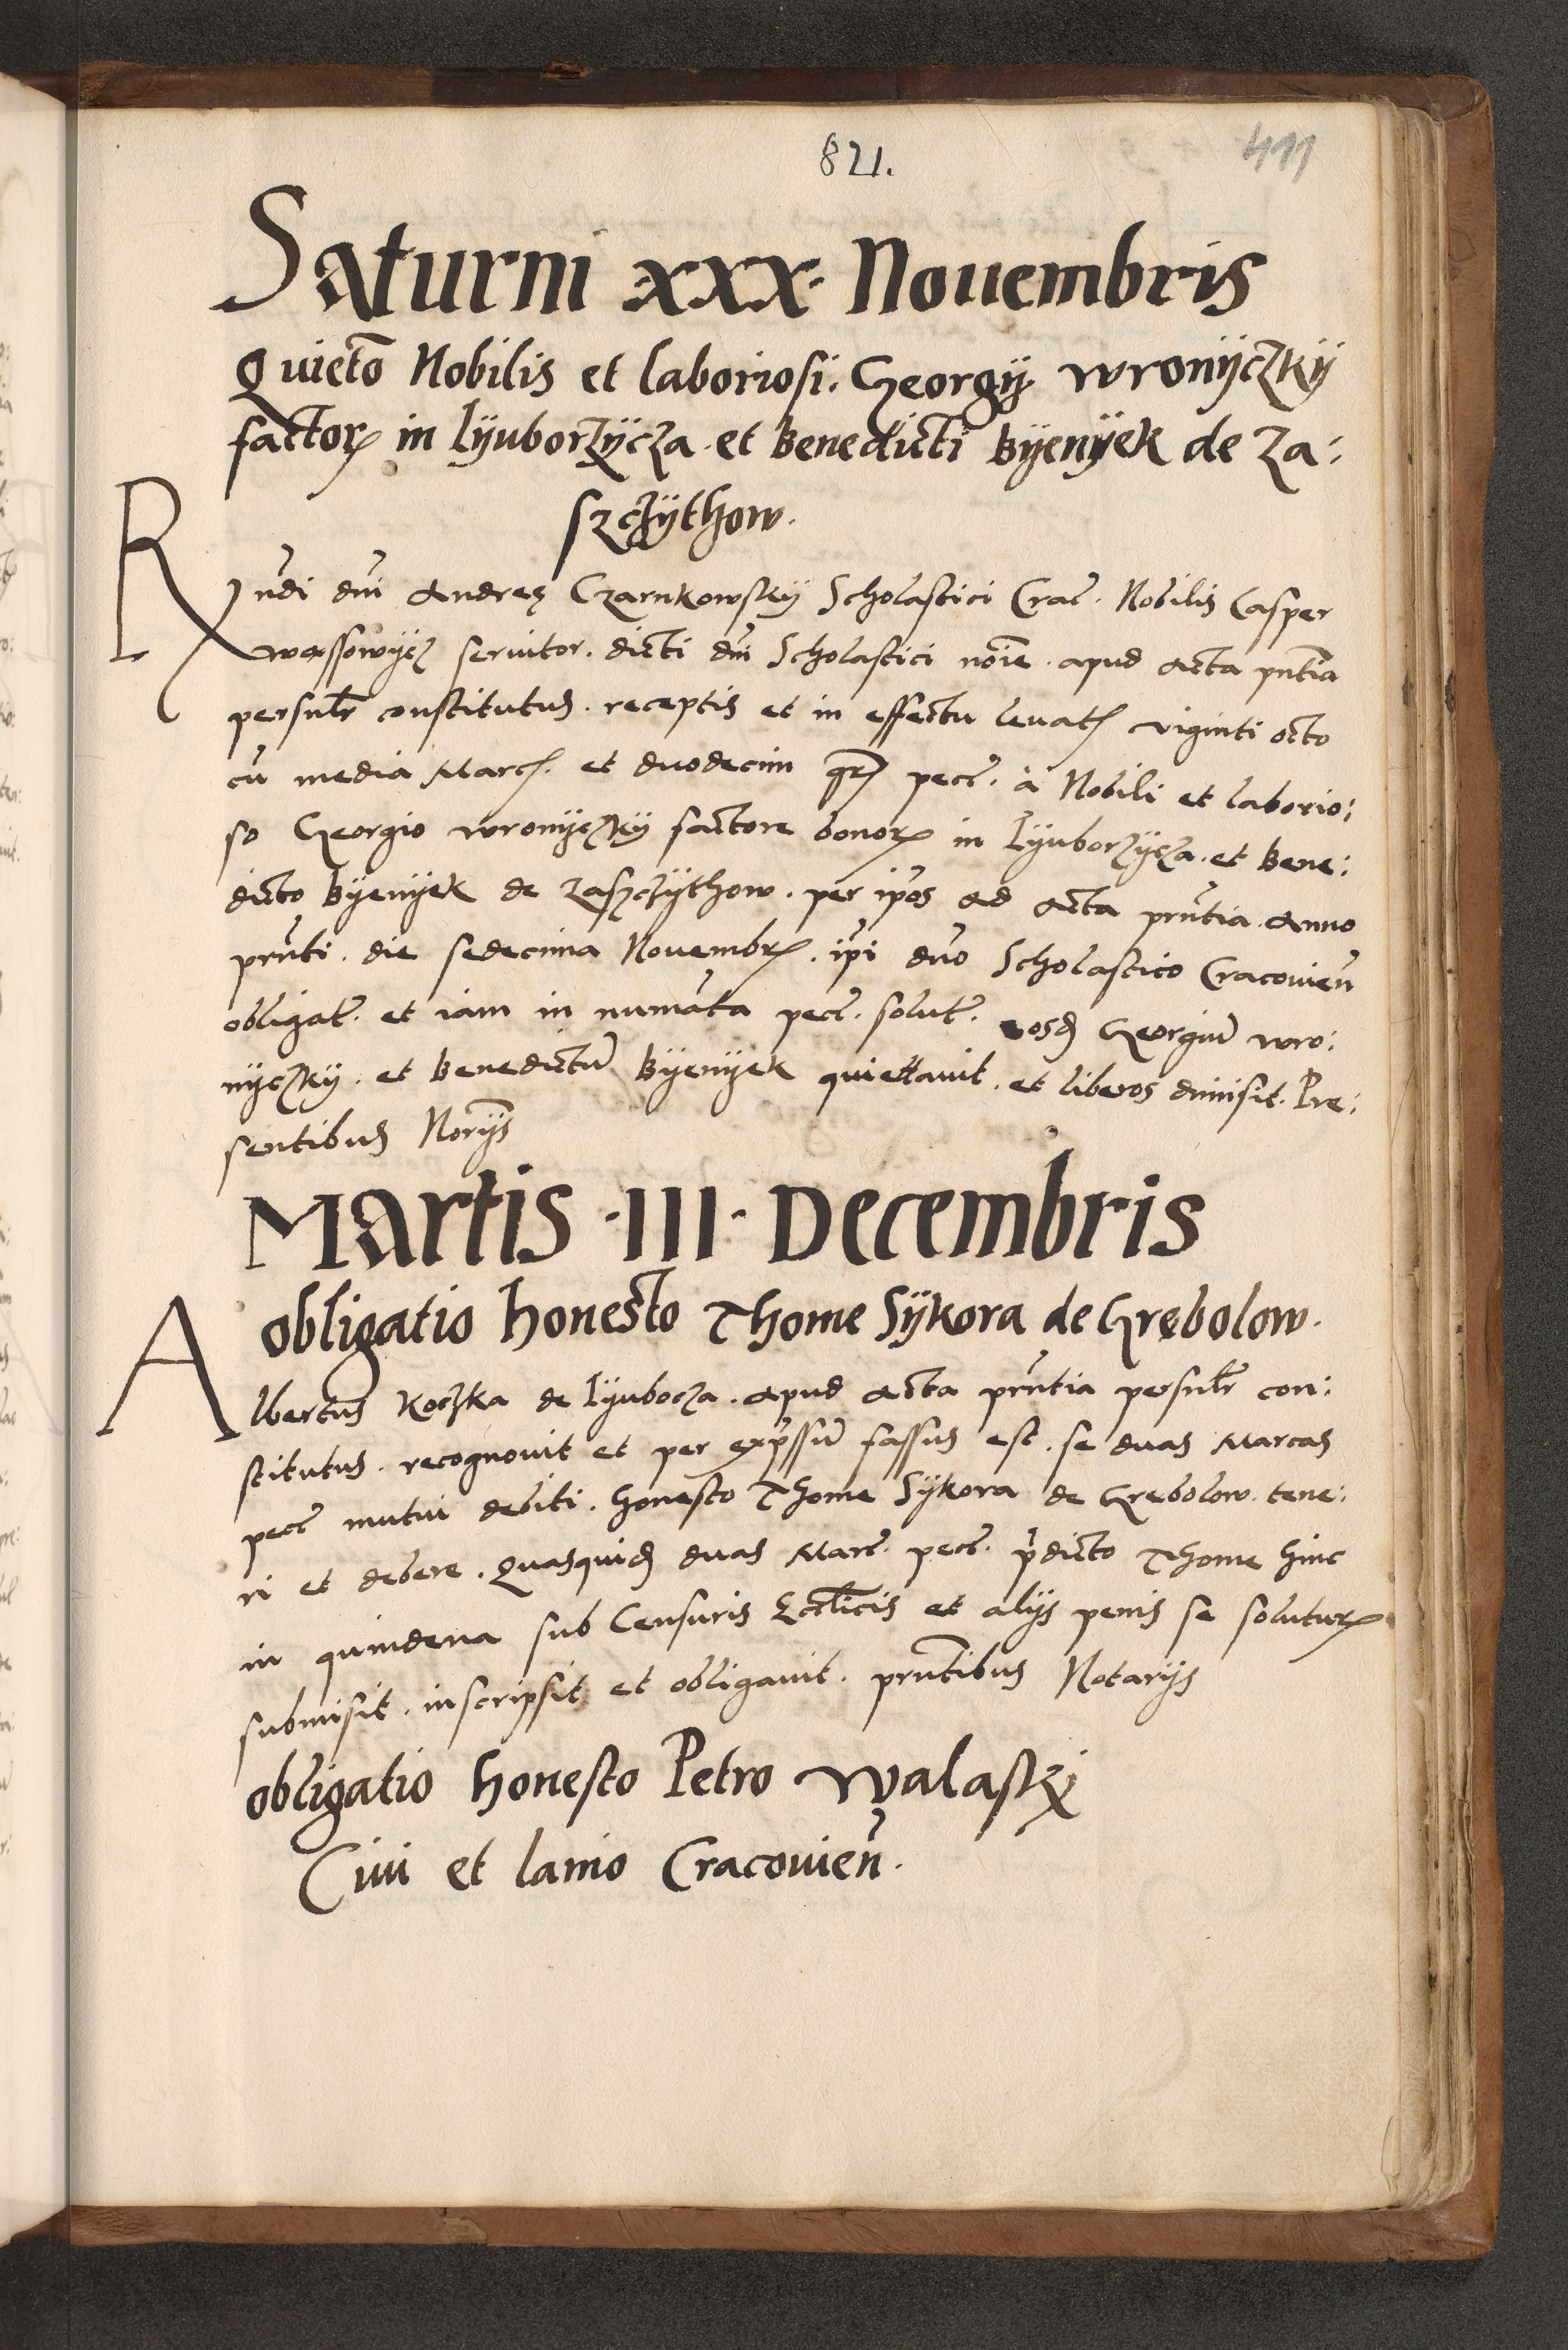 821.
411
Saturni xxx. Nouembris
Quieto Nobilis et laboriosi. Georgij wronyczky
factorꝝ in Lyuborzycza. et Benedicti Byenyek de Za:
szczythow.
Rndi dni Andreę Czarnkowsky Scholastici Crac. Nobilis Casper
wassowycz seruitor. dicti dni Scholastici noie. apud Acta pntia
persnlr constitutus. receptis et in effectu leuatꝭ viginti octo
cu media Marcꝭ. et duodecim grꝭ pec. à Nobili et laborio:
so Georgio wronyczky factore bonorꝝ in Lyuborzycza. et Bene:
dicto Byenyek de Zaszczythow. per ipos ad Acta prntia. Anno
prnti. die sedecima Nouembrꝭ. ipi dno Scholastico Cracouien
obligat. et iam in numata pec. solut. eosd Georgiu wro:
nyczky. et Benedictu Byenyek quiettauit. et liberos dimisit. Pre:
sentibus Norijs
Martis .III. Decembris
Obligatio honesto Thome Sykora de Grębolow.
Albertus Koczka de Lyubocza. apud Acta prntia persnlr con:
stitutus. recognouit et per expssu fassus est. se duas Marcas
pec mutui debiti. honesto Thome Sykora de Grebolow. tene:
ri et debere. Quasquid duas Marc. pec. pdicto Thome hinc
in quindena sub Censuris Ecclicis et alijs penis se soluturꝝ
submisit. inscripsit et obligauit. prntibus Notarijs
Obligatio honesto Petro Walaski
Ciui et lanio Cracouien.